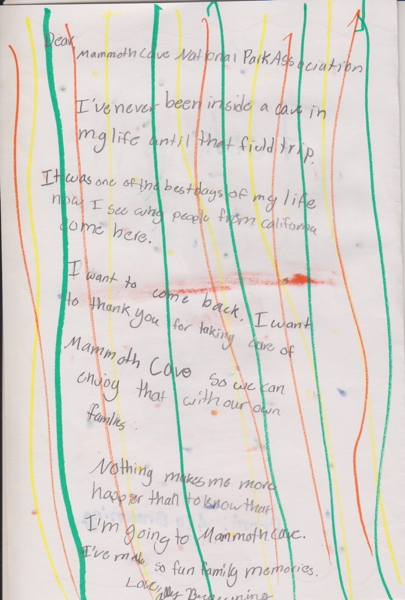 Dear
Mammoth Cave National Park Association
I've never been inside a cave in
my life until that field trip.
It was one of the best days of my life
now I see why people from california
come here.
I want to come back. I want
to thank you for taking care of
Mammoth Cave so we can
enjoy that with our own
families.
Nothing makes me more
happier than to know that
I'm going to Mammoth cave.
I've made so fun family memories.
Love,